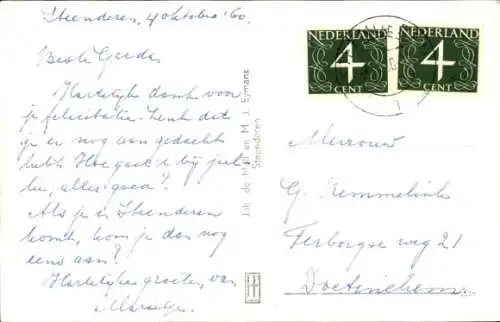 Steenderen, 4 oktober '60.
Beste Gerda,
Hartelijke dank voor
je felicitatie. Leuk dat
je er nog aan gedacht
hebt. Hoe gaat 't bij jul-
lie, alles goed?
Als je in Steenderen
komt, kom je dan nog
eens aan?
Hartelijke groeten, van
Joh. de M en M. J. Eymans
Steenderen
NEDERLAND
4
CENT
NEDERLAND
4
CENT
Mevrouw
G. Remmelink
Terborgse weg 21
Doetinchem